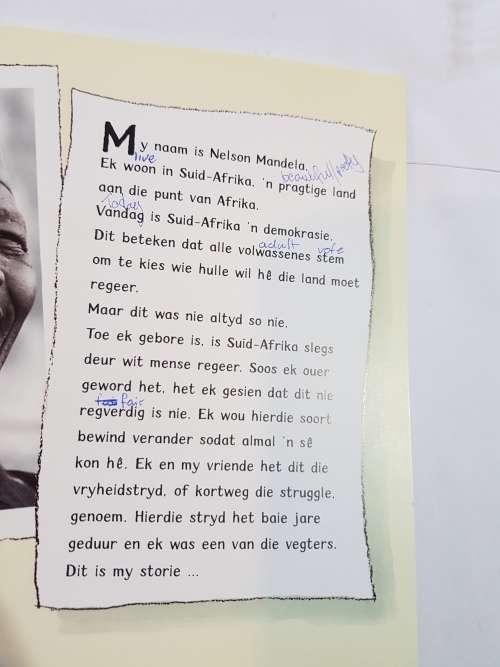 My naam is Nelson Mandela.
live
Ek woon in Suid-Afrika, 'n pragtige land
beautiful/
aan die punt van Afrika.
today
Vandag is Suid-Afrika 'n demokrasie.
adult vote
Dit beteken dat alle volwassenes stem
om te kies wie hulle wil hê die land moet
regeer.
Maar dit was nie altyd so nie.
Toe ek gebore is, is Suid-Afrika slegs
deur wit mense regeer. Soos ek ouer
geword het, het ek gesien dat dit nie
fair
regverdig is nie. Ek wou hierdie soort
bewind verander sodat almal 'n sê
kon hê. Ek en my vriende het dit die
vryheidstryd, of kortweg die struggle,
genoem. Hierdie stryd het baie jare
geduur en ek was een van die vegters.
Dit is my storie ...